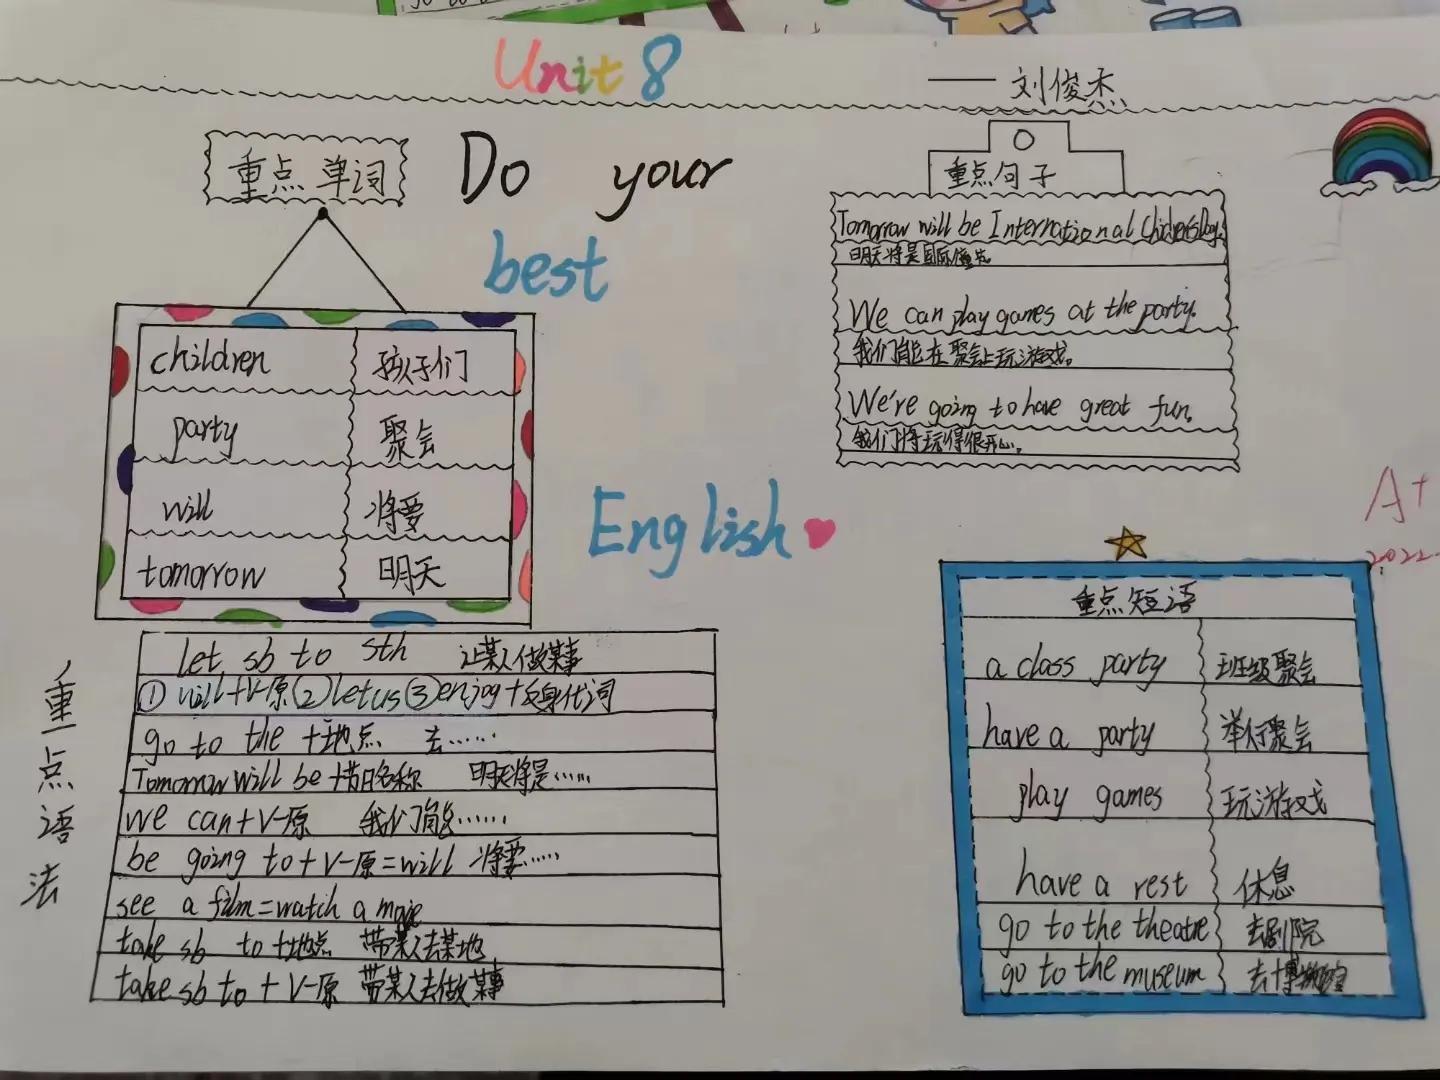 Unit 8
—— 刘俊杰
重点单词
Do your
best
English
children 孩子们
party 聚会
will 将要
tomorrow 明天
重点句子
Tomorrow will be International
明天将是国际
We can play games at the party.
我们能在聚会上玩游戏。
We're going to have great fun.
我们将玩得很开心。
A+
2022.
重点语法
let sb to sth 让某人做某事
① will+V-原(2)let us ③enjoy+反身代词
go to the +地点 去……
Tomorrow will be +节日名称 明天将是……
we can+V-原 我们能……
be going to+V-原=will 将要……
see a film=watch a movie
take sb to +地点 带某人去某地
take sb to + V-原 带某人去做某事
重点短语
a class party 班级聚会
have a party 举行聚会
play games 玩游戏
have a rest 休息
go to the theatre 去剧院
go to the museum 去博物馆